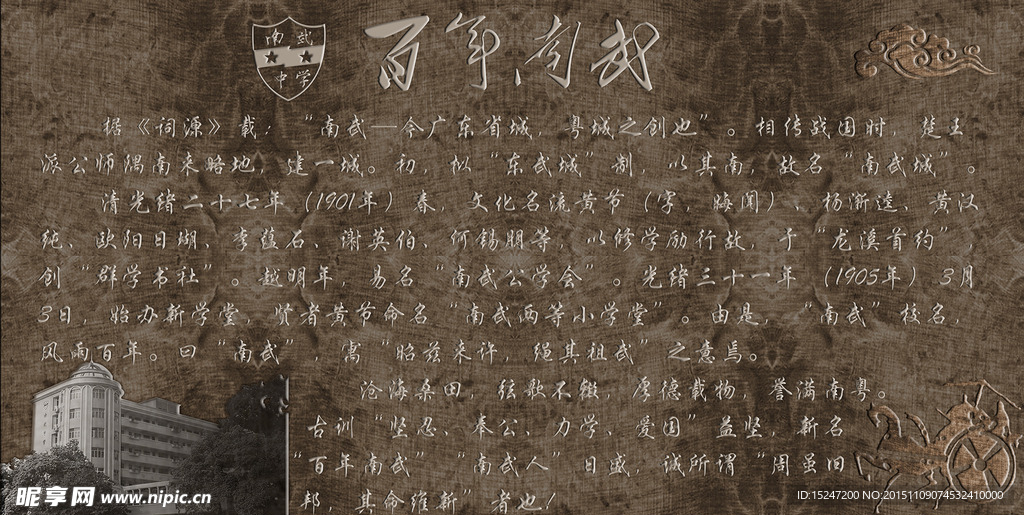 南武
中学
百年南武
据《词源》载：“南武—今广东省城，粤城之创也”。相传战国时，楚王
派公师隅南来略地，建一城。初，拟“东武城”制，以其南，故名“南武城”。
清光绪二十七年（1901年）春，文化名流黄节（字，晦闻）、杨渐逵、黄汉
纯、欧阳日瑚、李蕴石、谢英伯、何锡朋等，以修学励行故，于“龙溪首约”，
创“群学书社”。越明年，易名“南武公学会”。光绪三十一年（1905年）3月
3日，始办新学堂，贤者黄节命名“南武两等小学堂”。由是，“南武”校名，
风雨百年。曰“南武”，寓“昭兹来许，绳其祖武”之意焉。
沧海桑田，弦歌不辍，厚德载物，誉满南粤。
古训“坚忍、奉公、力学、爱国”益坚，新名
“百年南武”“南武人”日盛，诚所谓“周虽旧
邦，其命维新”者也！
昵享网 www.nipic.cn
ID:15247200 NO:20151109074532410000